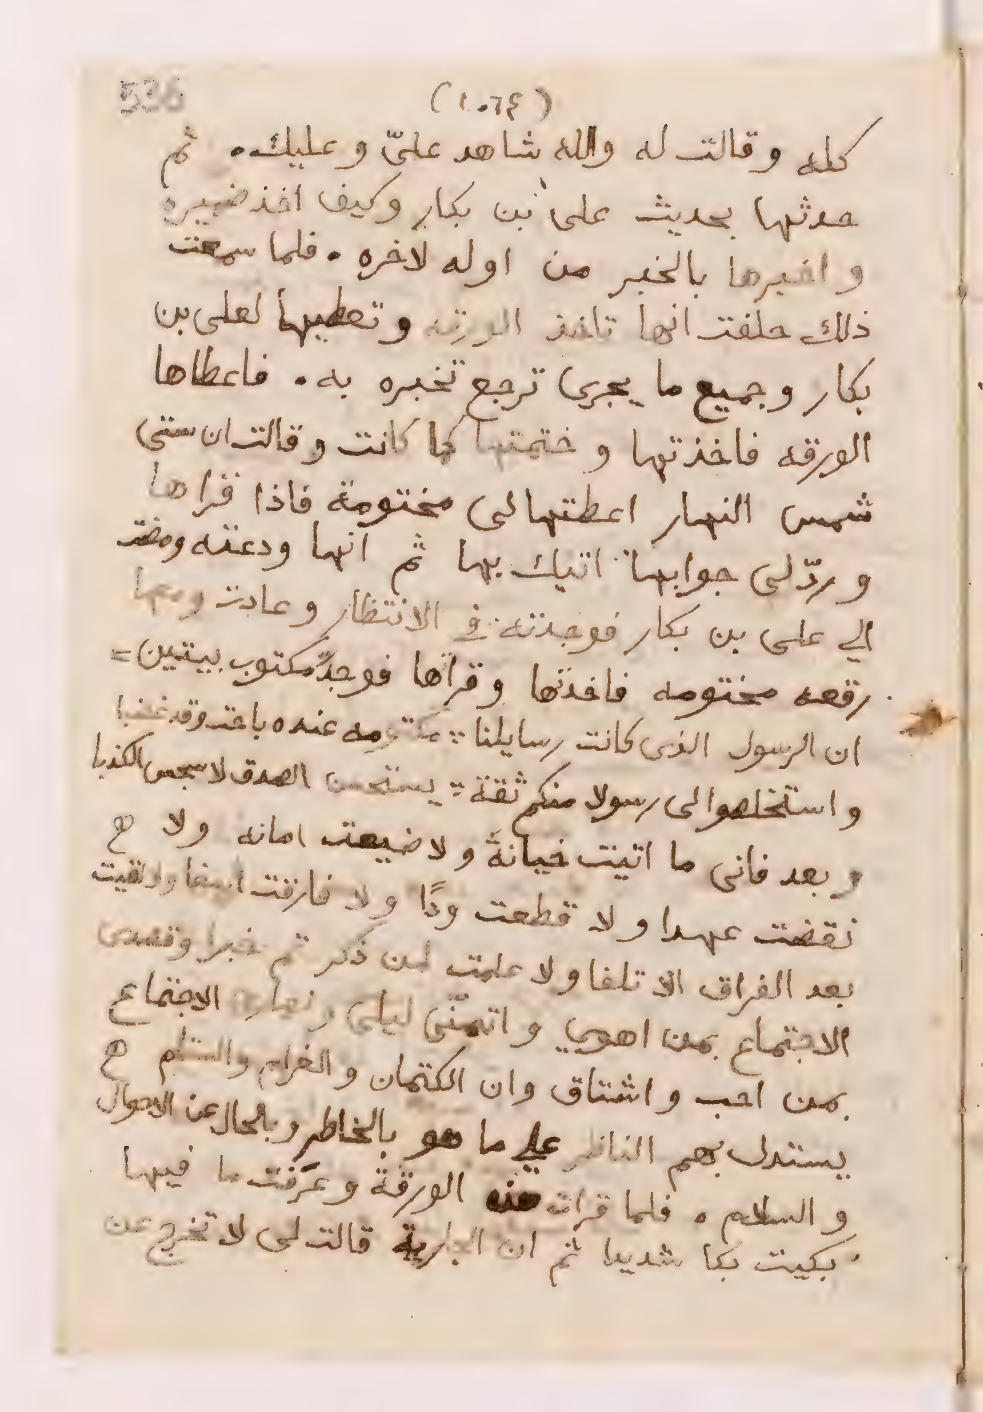 536
(١٠٦٤)
كله وقالت له والله شاهد عليّ وعليك. ثم
حدثها بحديث على بن بكار وكيف اخذ ضميره
واخبرها بالخبر من اوله لاخره . فلما سمعت
ذلك حلفت انها تاخذ الورقه وتعطيها لعلى بن
بكار وجميع ما يجرى ترجع تخبره به . فاعطاها
الورقه فاخذتها وختمتها كما كانت وقالت ان ستى
شمس النهار اعطتها لى مختومة فاذا قراها
وردّ لى جوابها اتيك بها ثم انها ودعته ومضت
الي على بن بكار فوجدته في الانتظار وعادت ومعها
رقعه مختومه فاخذتها وقراتها فوجد مكتوب بيتين =
ان الرسول الذى كانت رسايلنا : مكتومه عنده باحت وقد غضبا
واستخلصوا لى رسولا منكم ثقة : يستحسن الصدق لا يستحسن الكذبا
وبعد فانى ما اتيت خيانة ولا ضيعت امانه ولا
نقضت عهدا ولا قطعت ودًا ولا فارقت اسفا ولا لقيت
بعد الفراق الا تلفا ولا علمت لمن ذكر تم خبرا وقصدى
الاجتماع بمن اهوي واتمنّى ليلى ونهارى الاجتماع
بمن احب واشتاق وان الكتمان والغرام والسقام
يستدل بهم الناظر علي ما هو بالخاطر وبالحال عن الاحوال
والسلام . فلما قرات هذه الورقة وعرفت ما فيها
بكيت بكا شديدا ثم ان الجارية قالت لى لا تخرج عن